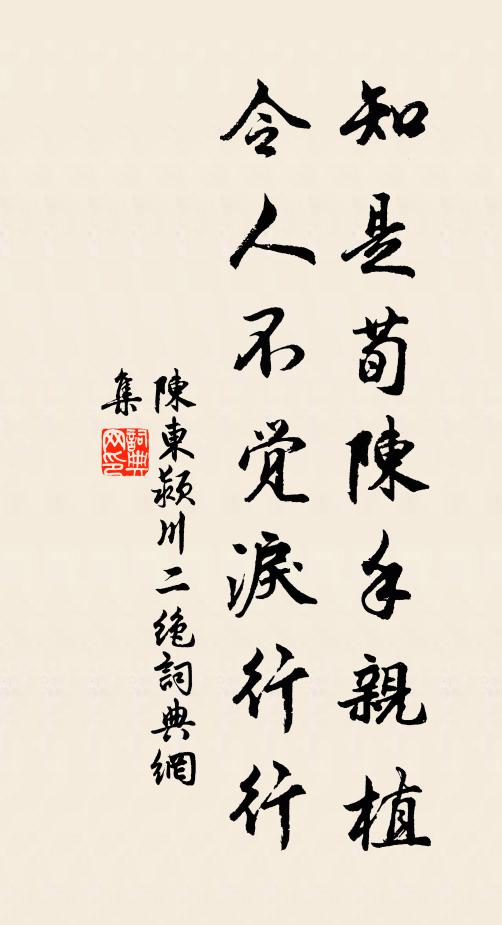 知是荀陳手親植
令人不觉淚行行
陳東潁川二絕詞典網
集
詞典
网印